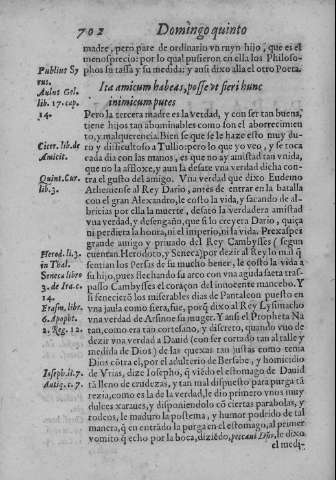 702 Domingo quinto
madre, pero pare de ordinario vn ruyn hijo, que es el
menosprecio: por lo qual pusieron en ella los Philoso-
Publius Sy
rus.
phos su tassa y su medida; y ansi dixo alla el otro Poeta.
Aulus Gel.
lib. 17. cap.
14.
Ita amicum habeas, posse vt fieri hunc
inimicum putes
Pero la tercera madre es la Verdad, y con ser tan buena,
tiene hijos tan abominables como son el aborrecimien
to, y malquerencia. Bien se que se le haze esto muy du-
Cicer. lib. de
Amicit.
ro y dificultoso a Tullio: pero lo que yo veo, y se toca
cada dia con las manos, es que no ay amistad tan vnida,
que no la afloxe, y aun la desate vna verdad dicha con-
Quint. Cur.
lib. 3.
tra el gusto del amigo. Vna verdad que dixo Eudemo
Atheniense al Rey Dario, antes de entrar en la batalla
con el gran Alexandro, le costo la vida, y sacando de al-
bricias por ella la muerte, desatò la verdadera amistad
vna verdad, y desengaño, que si lo creyera Dario, quiça
ni perdiera la honra, ni el imperio, ni la vida. Prexaspes
grande amigo y priuado del Rey Cambysses (segun
Herod. li. 3.
in Thal.
cuentan Herodoto, y Seneca) por dezir al Rey lo mal q̃
sentian los Persas de su mucho beuer, le costo la vida a
Seneca libro
3. de Ira c.
14.
su hijo, pues flechando su arco con vna aguda saeta tras-
passo Cambysses el coraçon del innocente mancebo. Y
si fenecieró los miserables dias de Pantaleon puesto en
Erasm. libr.
6. Apopht.
vna jaula como fiera, fue, porq̃ dixo al Rey Lysimacho
vna verdad de Arsinoe su muger. Y ansi el Propheta Na
2. Reg. 12.
tan, como era tan cortesano, y discreto, quando vuo de
dezir vna verdad a Dauid (con ser cortado tan al talle y
medida de Dios) de las quexas tan justas como tenia
Dios cótra el, por el adulterio de Bersabe, y homicidio
Ioseph. li. 7.
Antiq. c. 7.
de Vrias, dize Iosepho, q̃ viédo el estomago de Dauid
tā lleno de crudezas, y tan mal dispuesto para purga tā
rezia, como es la de la verdad, le dio primero vnos muy
dulces xaraues, y disponiendolo có ciertas parabolas, y
rodeos, le maduro la postema, y humor podrido de tal
manera, q̃ en entrádo la purga en el estomago, al primer
vomito q̃ echo por la boca, diziédo, peccaui Dño, le dixo
el medi-